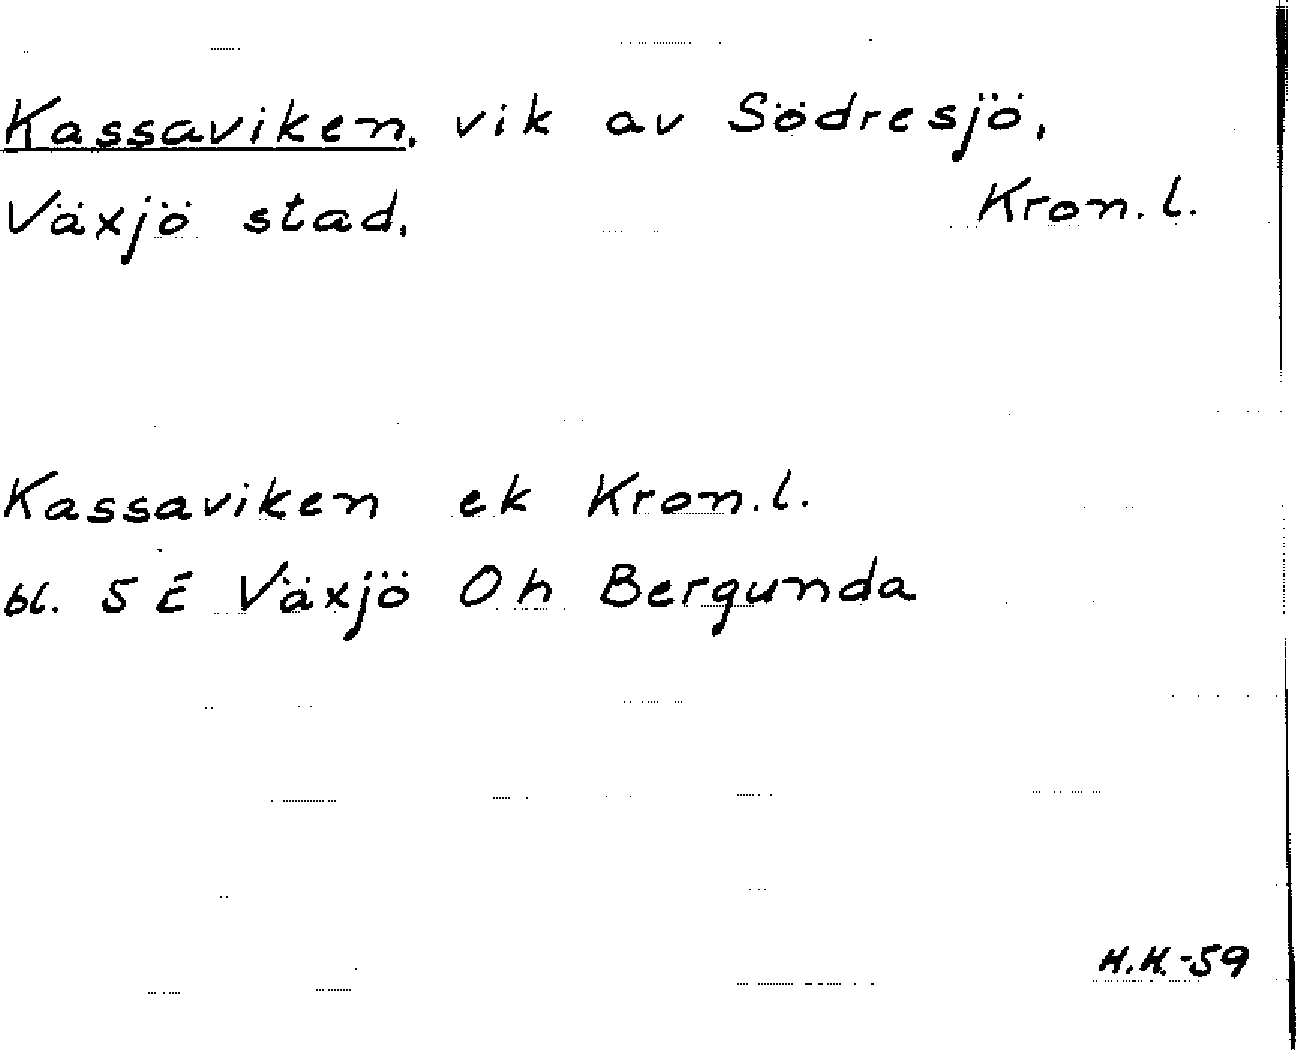 Kassaviken, vik av Södresjö,
Växjö stad. Kron. l.
Kassaviken ek Kron. l.
bl. 5 E Växjö Öh Bergunda
H.H.-59